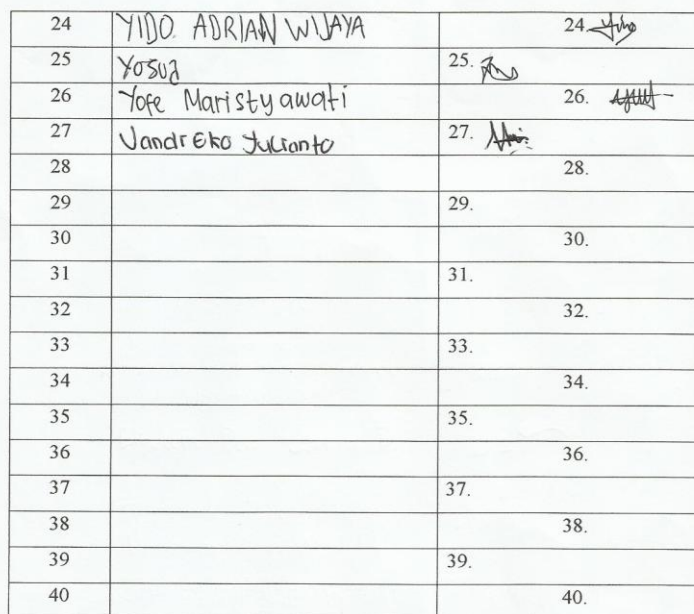 24 YIDO. ADRIAN WIJAYA 24.
25 Yosua 25.
26 Yofe Maristyawati 26.
27 Vandr Eko Yulianto 27.
28 28.
29 29.
30 30.
31 31.
32 32.
33 33.
34 34.
35 35.
36 36.
37 37.
38 38.
39 39.
40 40.